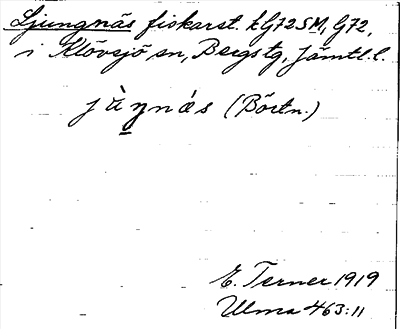 Ljungnäs fiskarst. kG72SM, G72,
i Klövsjö sn, Bergs tg, Jämtl. l.
(Börtn.)
E. Terner 1919
Ulma 463:11